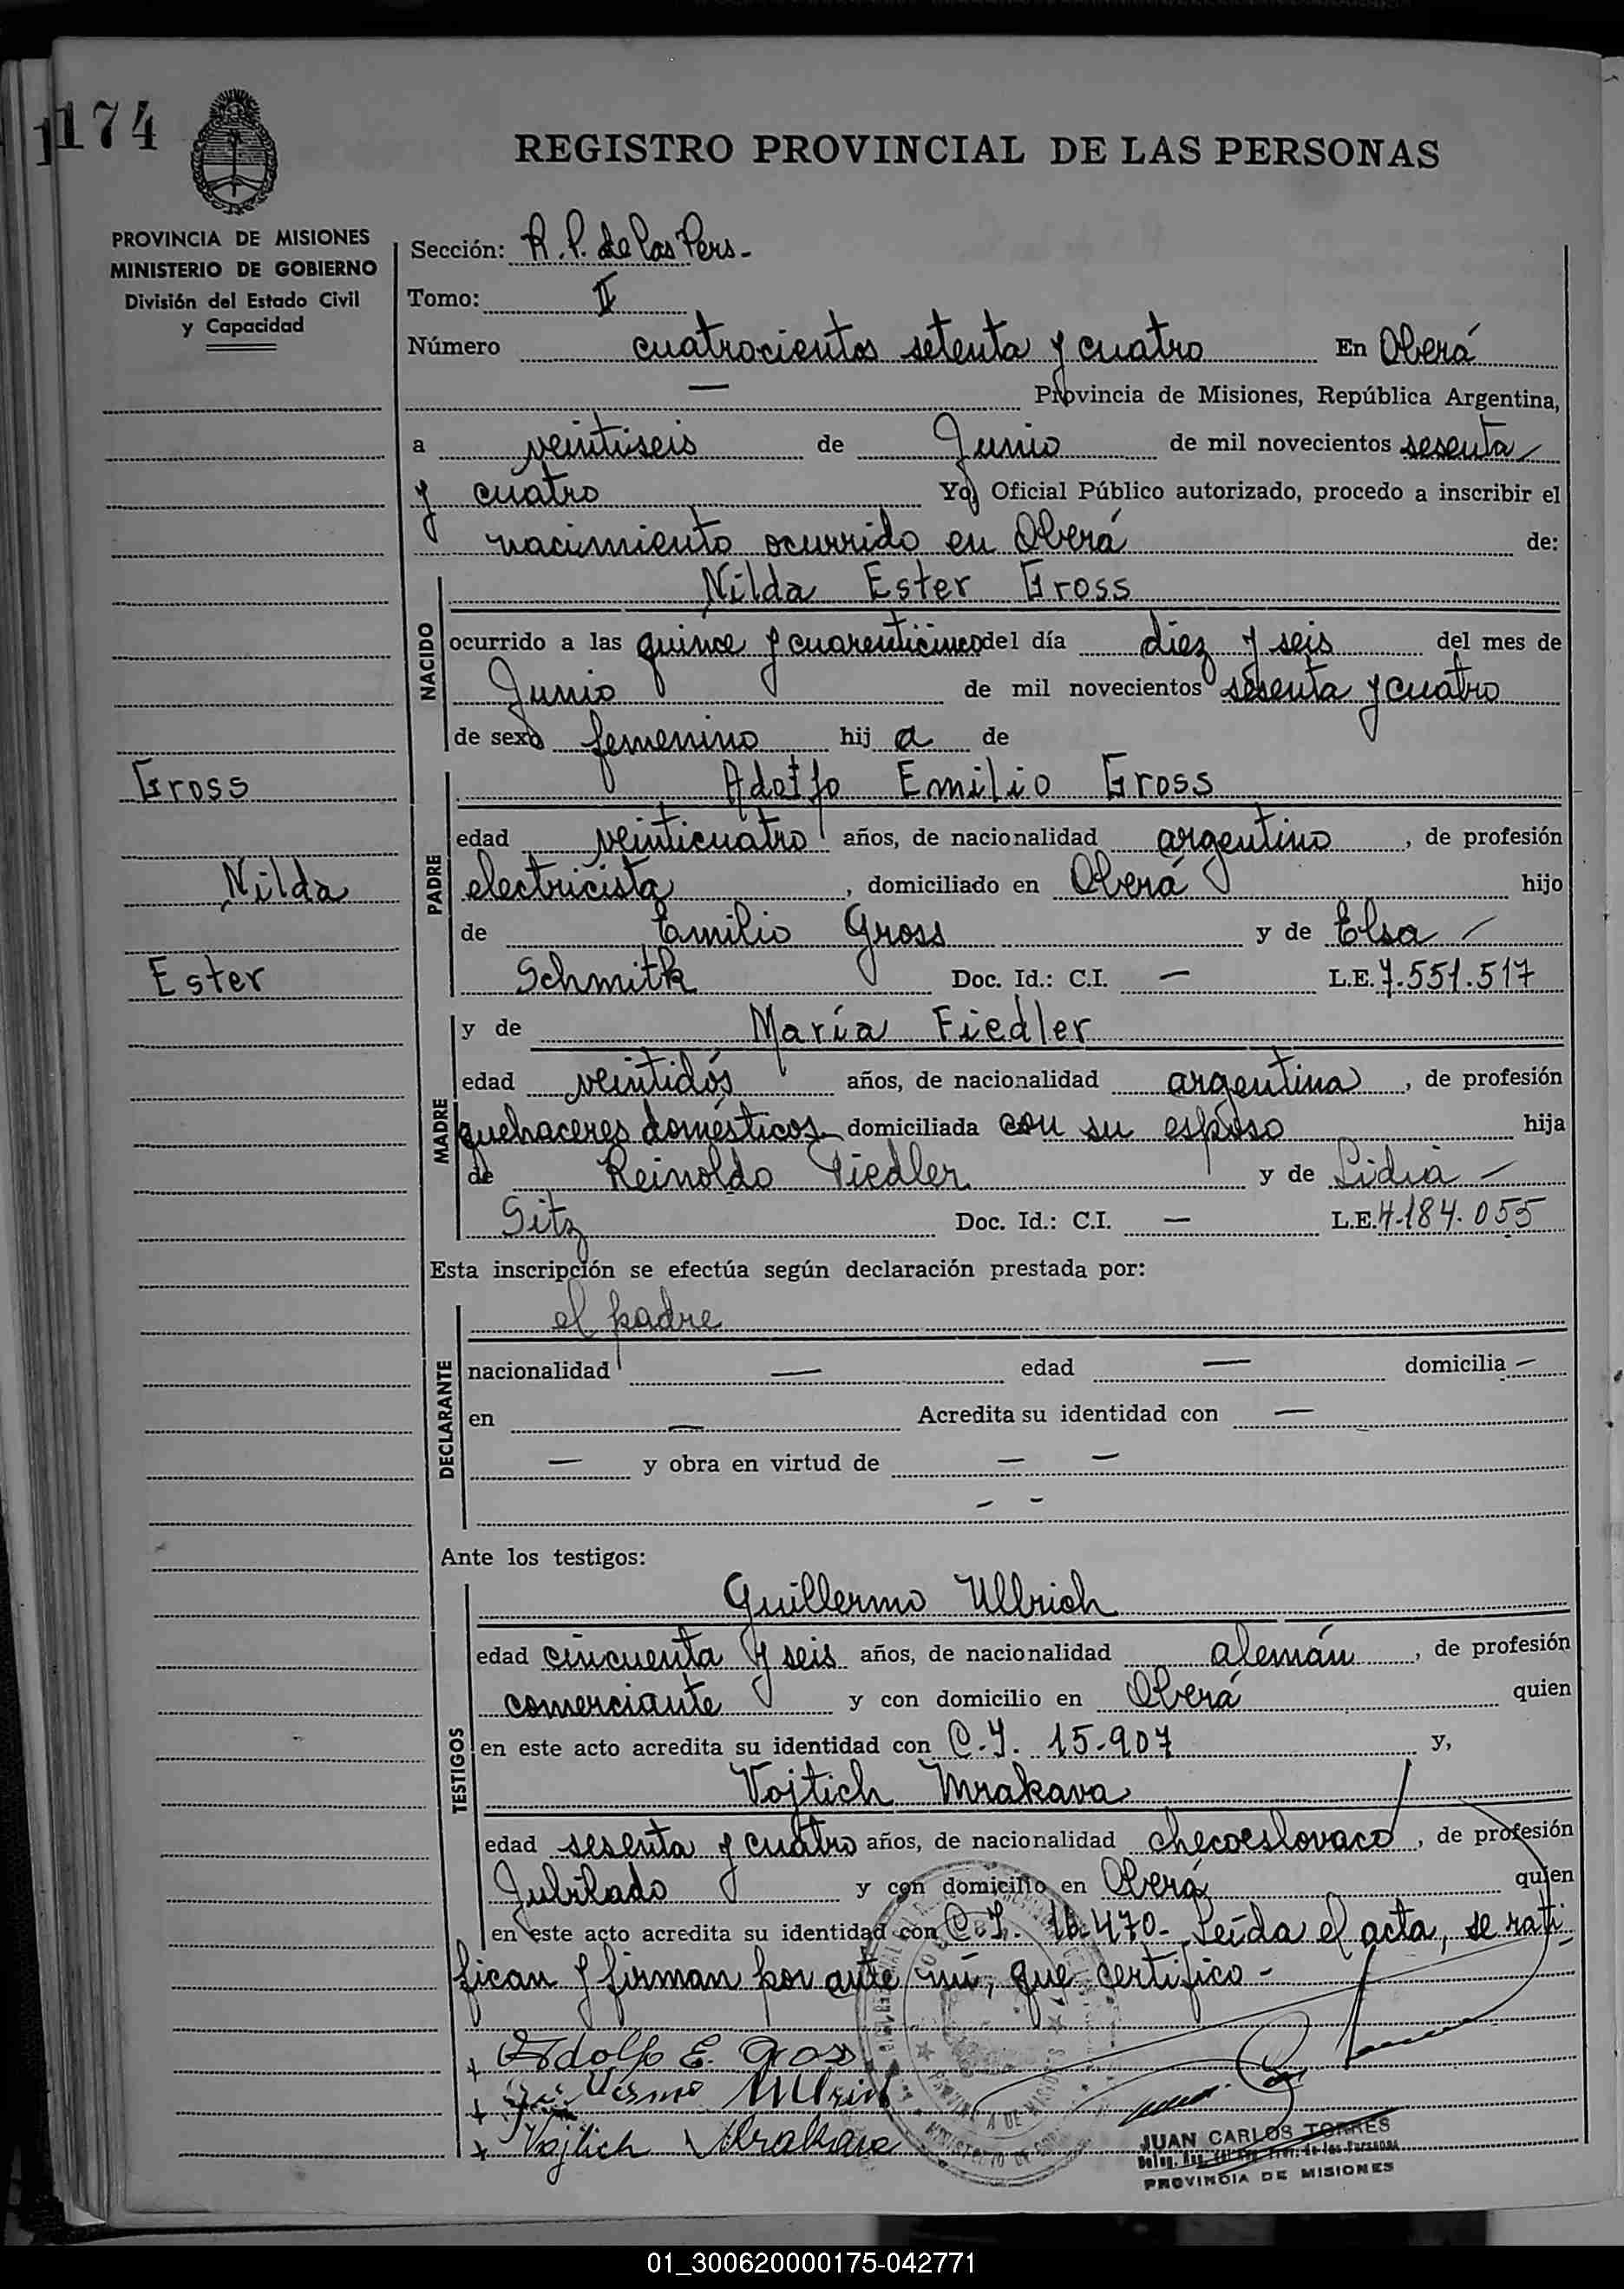 174
REGISTRO PROVINCIAL DE LAS PERSONAS
PROVINCIA DE MISIONES
MINISTERIO DE GOBIERNO
División del Estado Civil
y Capacidad
Sección: R. P. de las Pers.-
Tomo: II
Número cuatrocientos setenta y cuatro En Oberá
— Provincia de Misiones, República Argentina,
a veintiseis de Junio de mil novecientos sesenta
y cuatro Yo, Oficial Público autorizado, procedo a inscribir el
nacimiento ocurrido en Oberá de:
NACIDO
Nilda Ester Gross
ocurrido a las quince y cuarenticinco del día diez y seis del mes de
Junio de mil novecientos sesenta y cuatro
de sexo femenino hij a de
Gross
Nilda
Ester
PADRE
Adolfo Emilio Gross
edad veinticuatro años, de nacionalidad argentino, de profesión
electricista, domiciliado en Oberá hijo
de Emilio Gross y de Elsa
Schmitk Doc. Id.: C.I. — L.E. 7.551.517
MADRE
y de María Fiedler
edad veintidós años, de nacionalidad argentina, de profesión
quehaceres domésticos domiciliada con su esposo hija
de Reinoldo Fiedler y de Lidia —
Sitz Doc. Id.: C.I. — L.E. 4.184.055
Esta inscripción se efectúa según declaración prestada por:
DECLARANTE
el padre
nacionalidad — edad — domicilia —
en — Acredita su identidad con —
— y obra en virtud de — —
- -
Ante los testigos:
TESTIGOS
Guillermo Ullrich
edad cincuenta y seis años, de nacionalidad alemán, de profesión
comerciante y con domicilio en Oberá quien
en este acto acredita su identidad con C.I. 15.907 y,
Vojtich Mrakava
edad sesenta y cuatro años, de nacionalidad checoeslovaco, de profesión
Jubilado y con domicilio en Oberá quien
en este acto acredita su identidad con C.I. 16.470- Leída el acta, se rati
fican y firman por ante mí, que certifico-
Adolfo E. Gross
Vojtich Mrakava
JUAN CARLOS TORRES
PROVINCIA DE MISIONES
01_300620000175-042771